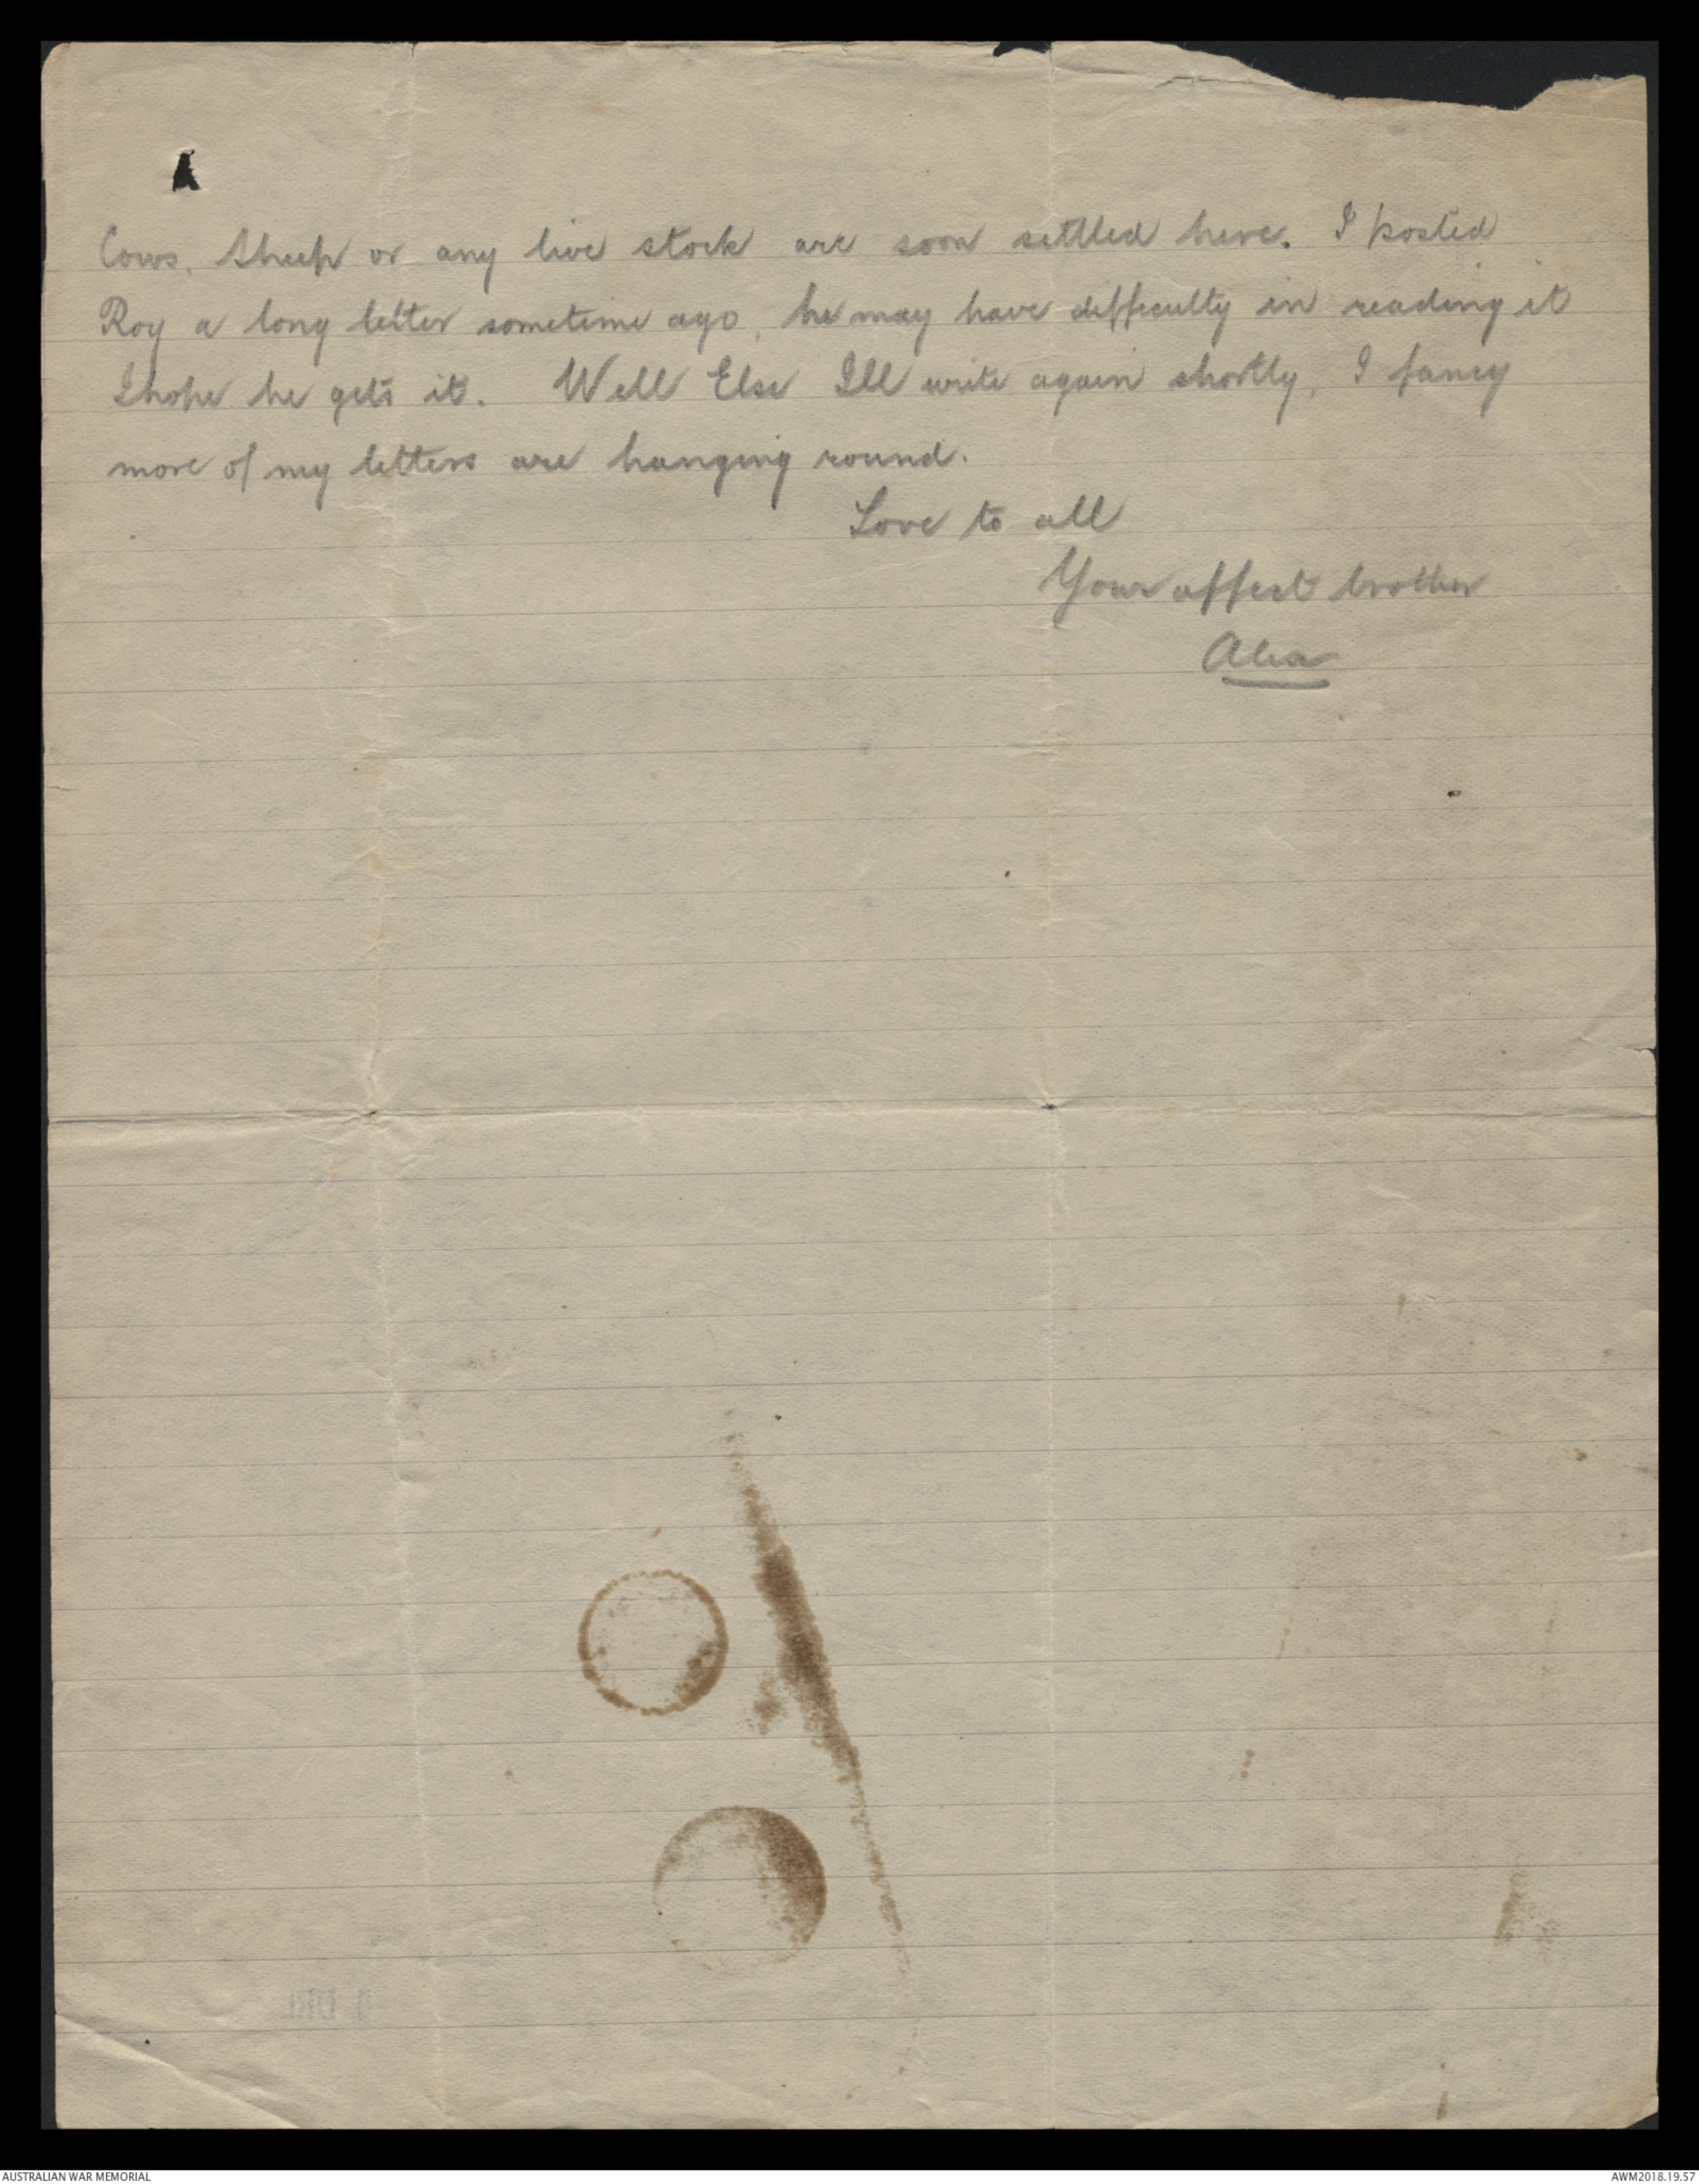 Cows. Sheep or any live stock are soon settled here. I posted
Roy a long letter sometime ago, he may have difficulty in reading it
I hope he gets it. Well Else Ill write again shortly, I fancy
more of my letters are hanging round.
Love to all
Your affect brother
Alex
AUSTRALIAN WAR MEMORIAL
AWM2018.19.57